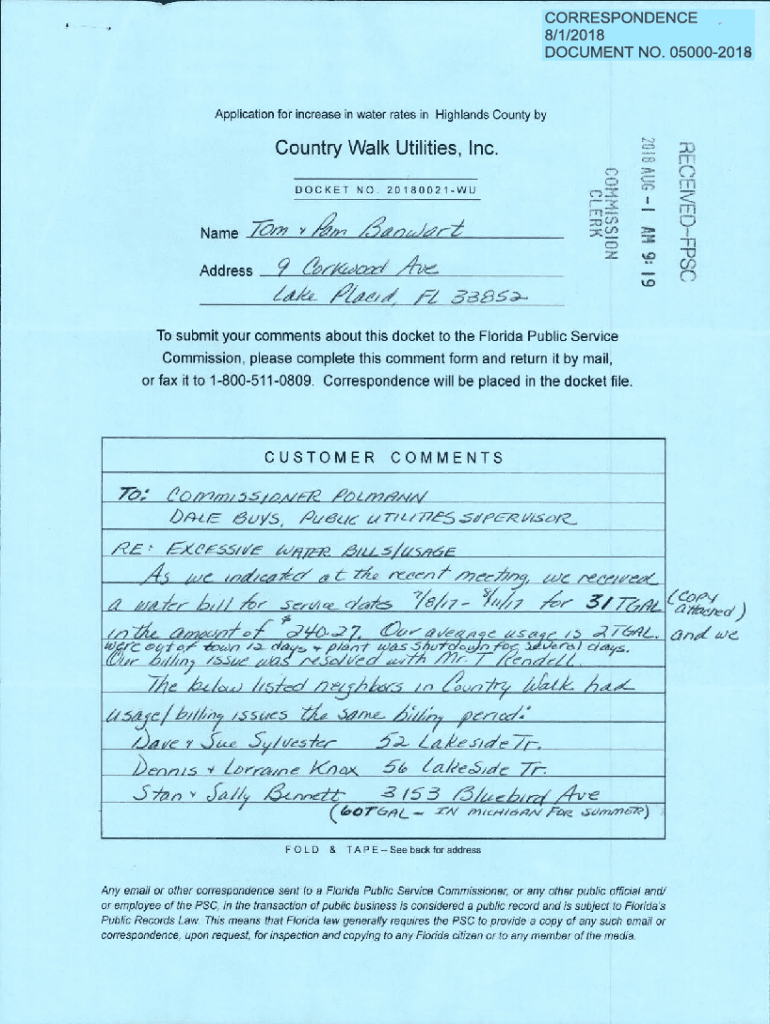 CORRESPONDENCE
8/1/2018
DOCUMENT NO. 05000-2018
Application for increase in water rates in Highlands County by
Country Walk Utilities, Inc.
DOCKET NO. 20180021-WU
RECEIVED-FPSC
2018 AUG -1 AM 9:19
COMMISSION
CLERK
Name Tom & Pam Banwart
Address 9 Corkwood Ave
Lake Placid, FL 33852
To submit your comments about this docket to the Florida Public Service
Commission, please complete this comment form and return it by mail,
or fax it to 1-800-511-0809. Correspondence will be placed in the docket file.
CUSTOMER COMMENTS
TO: COMMISSIONER POLMANN
DALE BUYS, PUBLIC UTILITIES SUPERVISOR
RE: EXCESSIVE WATER BILLS/USAGE
As we indicated at the recent meeting, we received
a water bill for service dates 7/8/17 - 8/11/17 for 31 TGAL (COPY attached)
in the amount of $240.27. Our average usage is 2TGAL. and we
were out of town 12 days & plant was shutdown for several days.
Our billing issue was resolved with Mr. T Rendell.
The below listed neighbors in Country Walk had
usage/billing issues the same billing period:
Dave & Sue Sylvester 52 Lakeside Tr.
Dennis & Lorraine Knox 56 LakeSide Tr.
Stan & Sally Bennett 3153 Bluebird Ave
(60TGAL - IN MICHIGAN FOR SUMMER)
FOLD & TAPE – See back for address
Any email or other correspondence sent to a Florida Public Service Commissioner, or any other public official and/
or employee of the PSC, in the transaction of public business is considered a public record and is subject to Florida's
Public Records Law. This means that Florida law generally requires the PSC to provide a copy of any such email or
correspondence, upon request, for inspection and copying to any Florida citizen or to any member of the media.